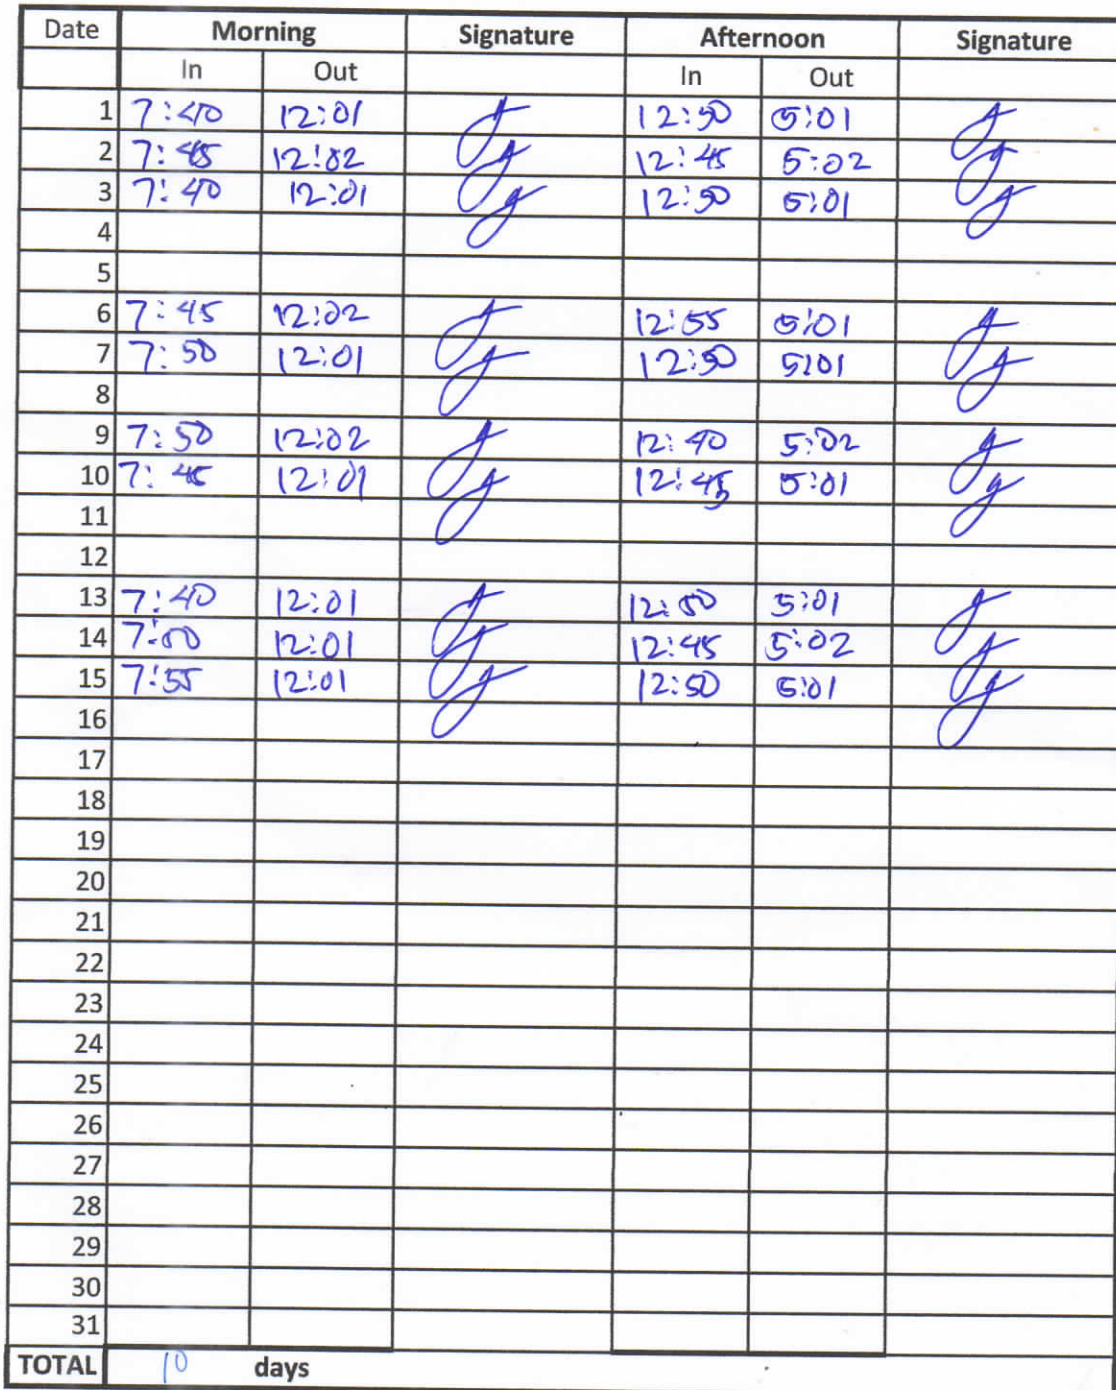 Date Morning Signature Afternoon Signature
In Out In Out
1 7:40 12:01 12:50 5:01
2 7:45 12:02 12:45 5:02
3 7:40 12:01 12:50 5:01
4
5
6 7:45 12:02 12:55 5:01
7 7:50 12:01 12:50 5:01
8
9 7:50 12:02 12:40 5:02
10 7:45 12:01 12:45 5:01
11
12
13 7:40 12:01 12:50 5:01
14 7:50 12:01 12:45 5:02
15 7:55 12:01 12:50 5:01
16
17
18
19
20
21
22
23
24
25
26
27
28
29
30
31
TOTAL 10 days